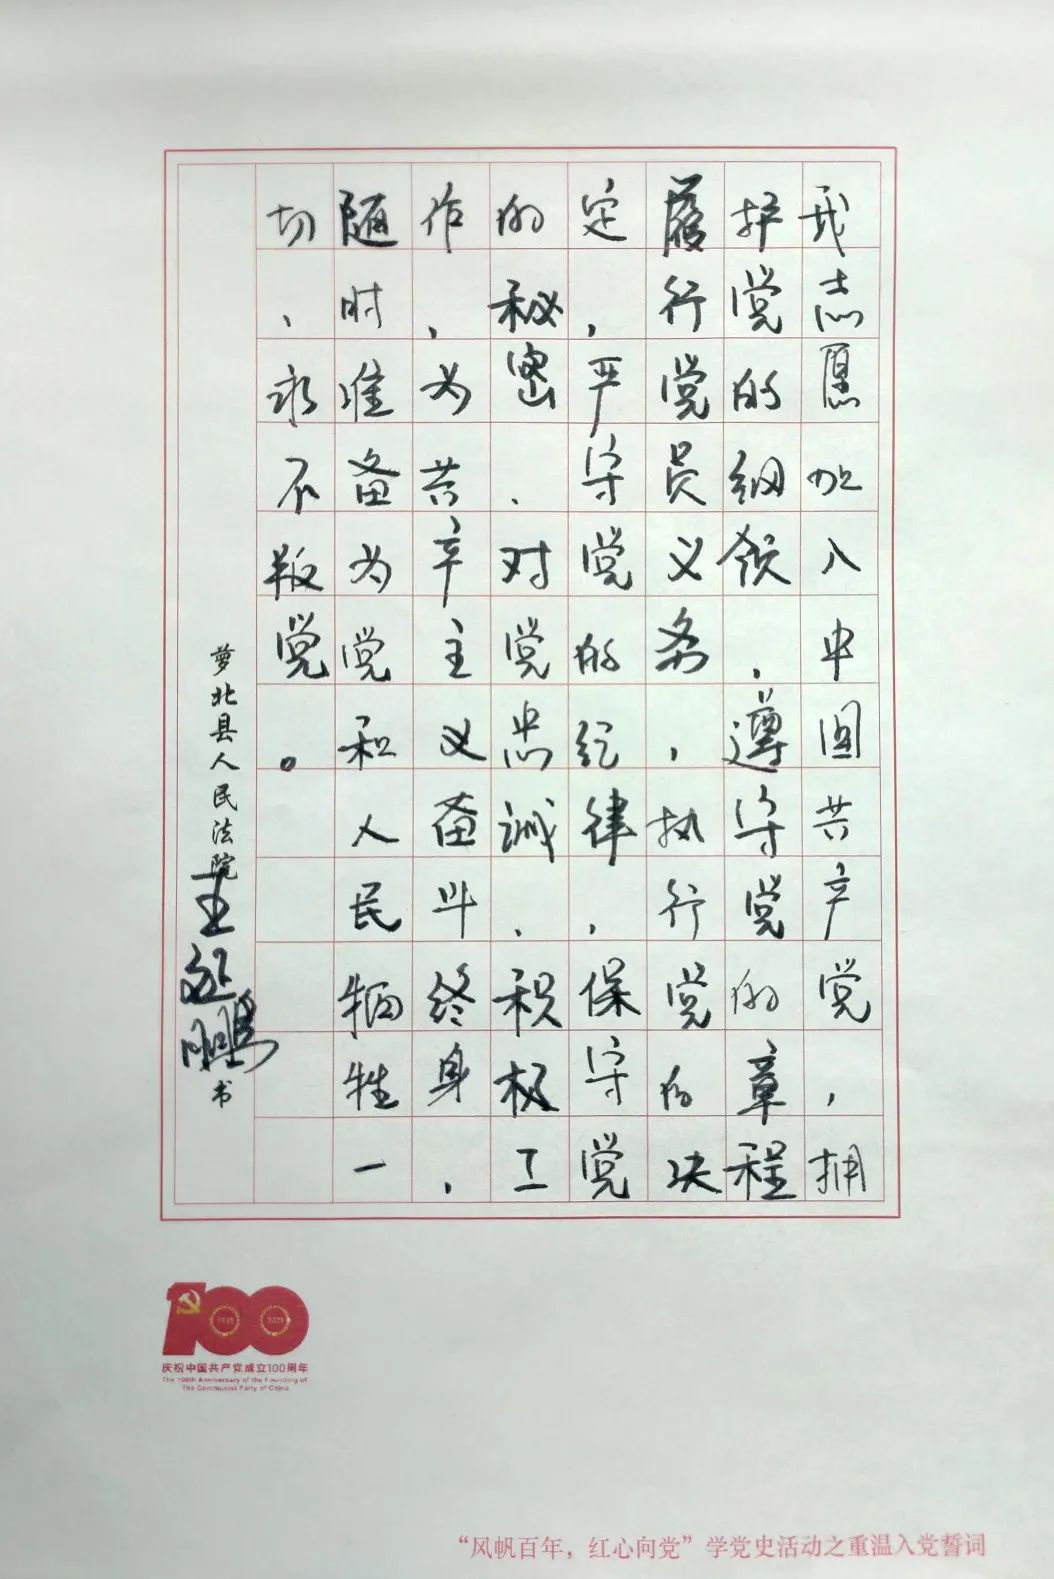 我志愿加入中国共产党，拥
护党的纲领，遵守党的章程
履行党员义务，执行党的决
定，严守党的纪律，保守党
的秘密、对党忠诚、积极工
作，为共产主义奋斗终身，
随时准备为党和人民牺牲一
切、永不叛党。
萝北县人民法院 书
100
1921 2021
庆祝中国共产党成立100周年
The 100th Anniversary of the Founding of
The Communist Party of China
“风帆百年，红心向党”学党史活动之重温入党誓词